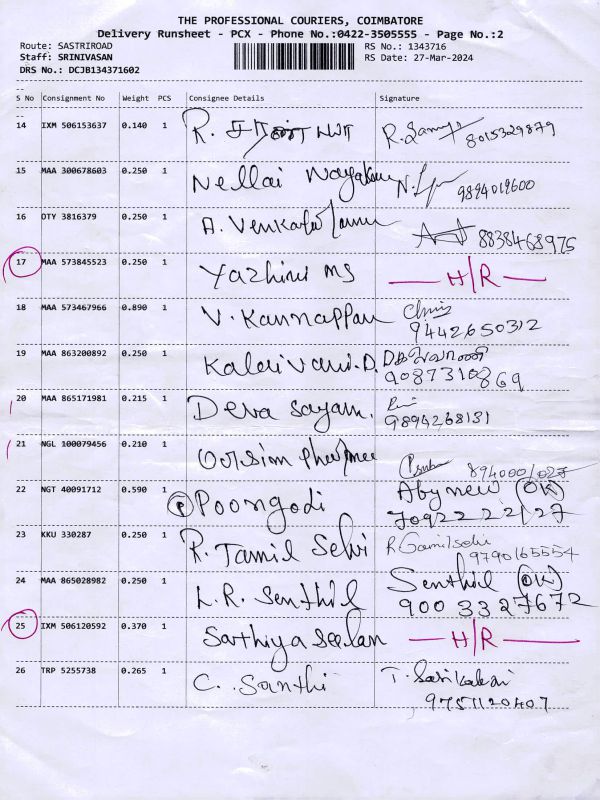 THE PROFESSIONAL COURIERS, COIMBATORE
Delivery Runsheet - PCX - Phone No.:0422-3505555 - Page No.:2
Route: SASTRIROAD RS No.: 1343716
Staff: SRINIVASAN RS Date: 27-Mar-2024
DRS No.: DCJB134371602
S No Consignment No Weight PCS Consignee Details Signature
14 IXM 506153637 0.140 1 R. 8015329879
15 MAA 300678603 0.250 1 Nellai
9894019600
16 OTY 3816379 0.250 1 A.
8838468975
17 MAA 573845523 0.250 1 Yazhini MS H/R
18 MAA 573467966 0.890 1 V. Kannappan
9442650312
19 MAA 863200892 0.250 1 Kalaivani.D.
9087310869
20 MAA 865171981 0.215 1 Deva sayam.
9894268131
21 NGL 100079456 0.210 1
22 NGT 40091712 0.590 1 P Poongodi Abynew OK
7092222127
23 KKU 330287 0.250 1 R. Tamil Selvi
9790165554
24 MAA 865028982 0.250 1 L.R. Senthil Senthil OK
9003327672
25 IXM 506120592 0.370 1 Sathiya Seelan H/R
26 TRP 5255738 0.265 1 C. Santhi T.
9751120407